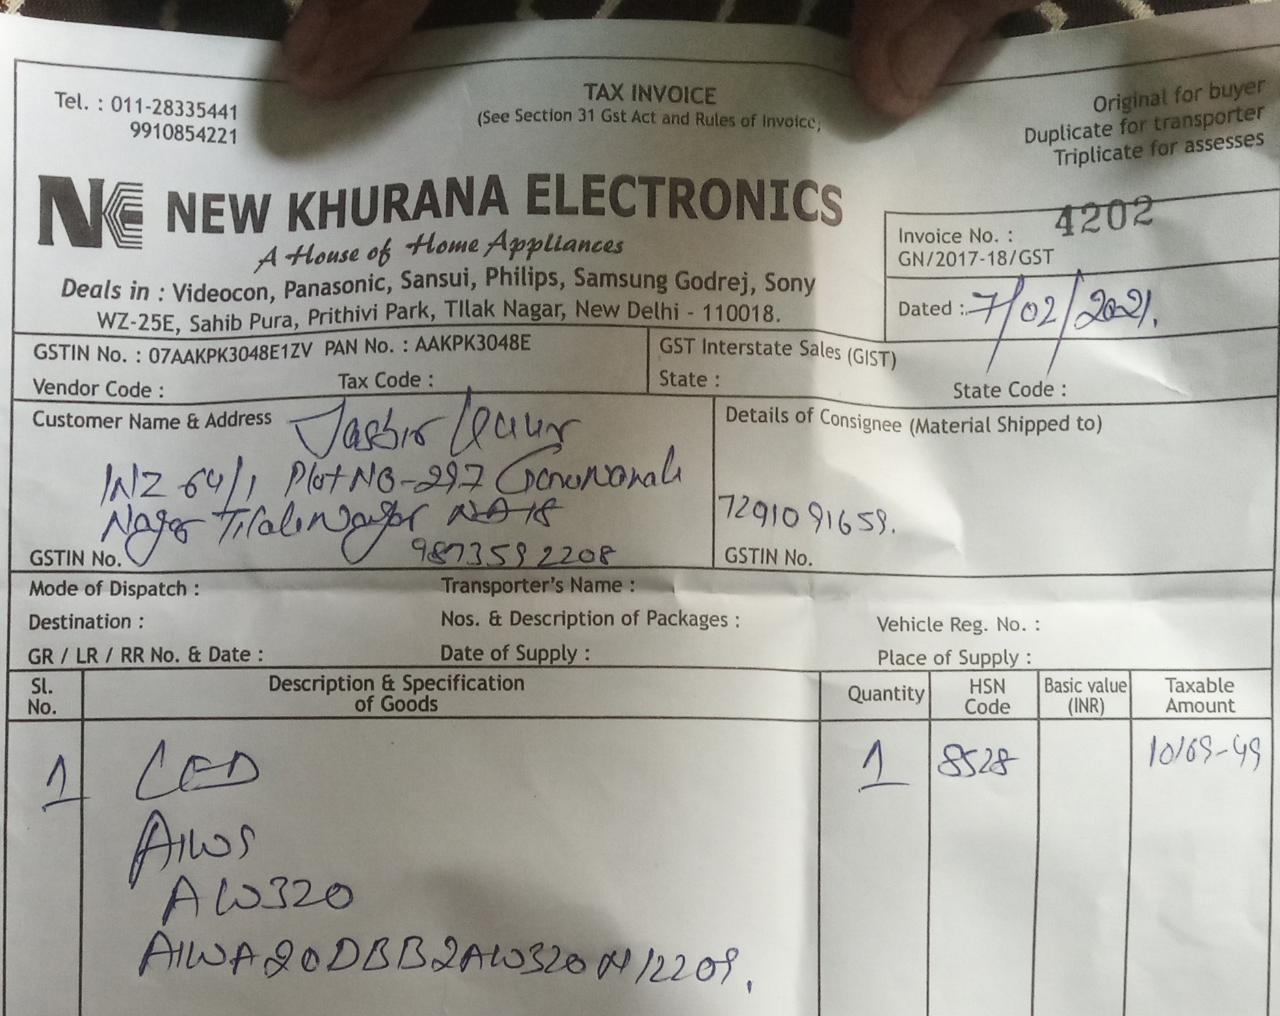 Tel. : 011-28335441
9910854221
TAX INVOICE
(See Section 31 Gst Act and Rules of Invoice)
Original for buyer
Duplicate for transporter
Triplicate for assesses
NEW KHURANA ELECTRONICS
A House of Home Appliances
Deals in : Videocon, Panasonic, Sansui, Philips, Samsung Godrej, Sony
WZ-25E, Sahib Pura, Prithivi Park, TIlak Nagar, New Delhi - 110018.
Invoice No. : 4202
GN/2017-18/GST
Dated : 7/02/2021.
GSTIN No. : 07AAKPK3048E1ZV PAN No. : AAKPK3048E
Vendor Code : Tax Code :
GST Interstate Sales (GIST)
State : State Code :
Customer Name & Address Jasbir Kaur
WZ 64/1 Plot No-297
Nagar Tilak Nagar ND-18
GSTIN No. 9873592208
Details of Consignee (Material Shipped to)
7291091659.
GSTIN No.
Mode of Dispatch : Transporter's Name :
Destination : Nos. & Description of Packages : Vehicle Reg. No. :
GR / LR / RR No. & Date : Date of Supply : Place of Supply :
Sl. No. Description & Specification of Goods Quantity HSN Code Basic value (INR) Taxable Amount
1 LED 1 8528 10169-49
AIWA
AW320